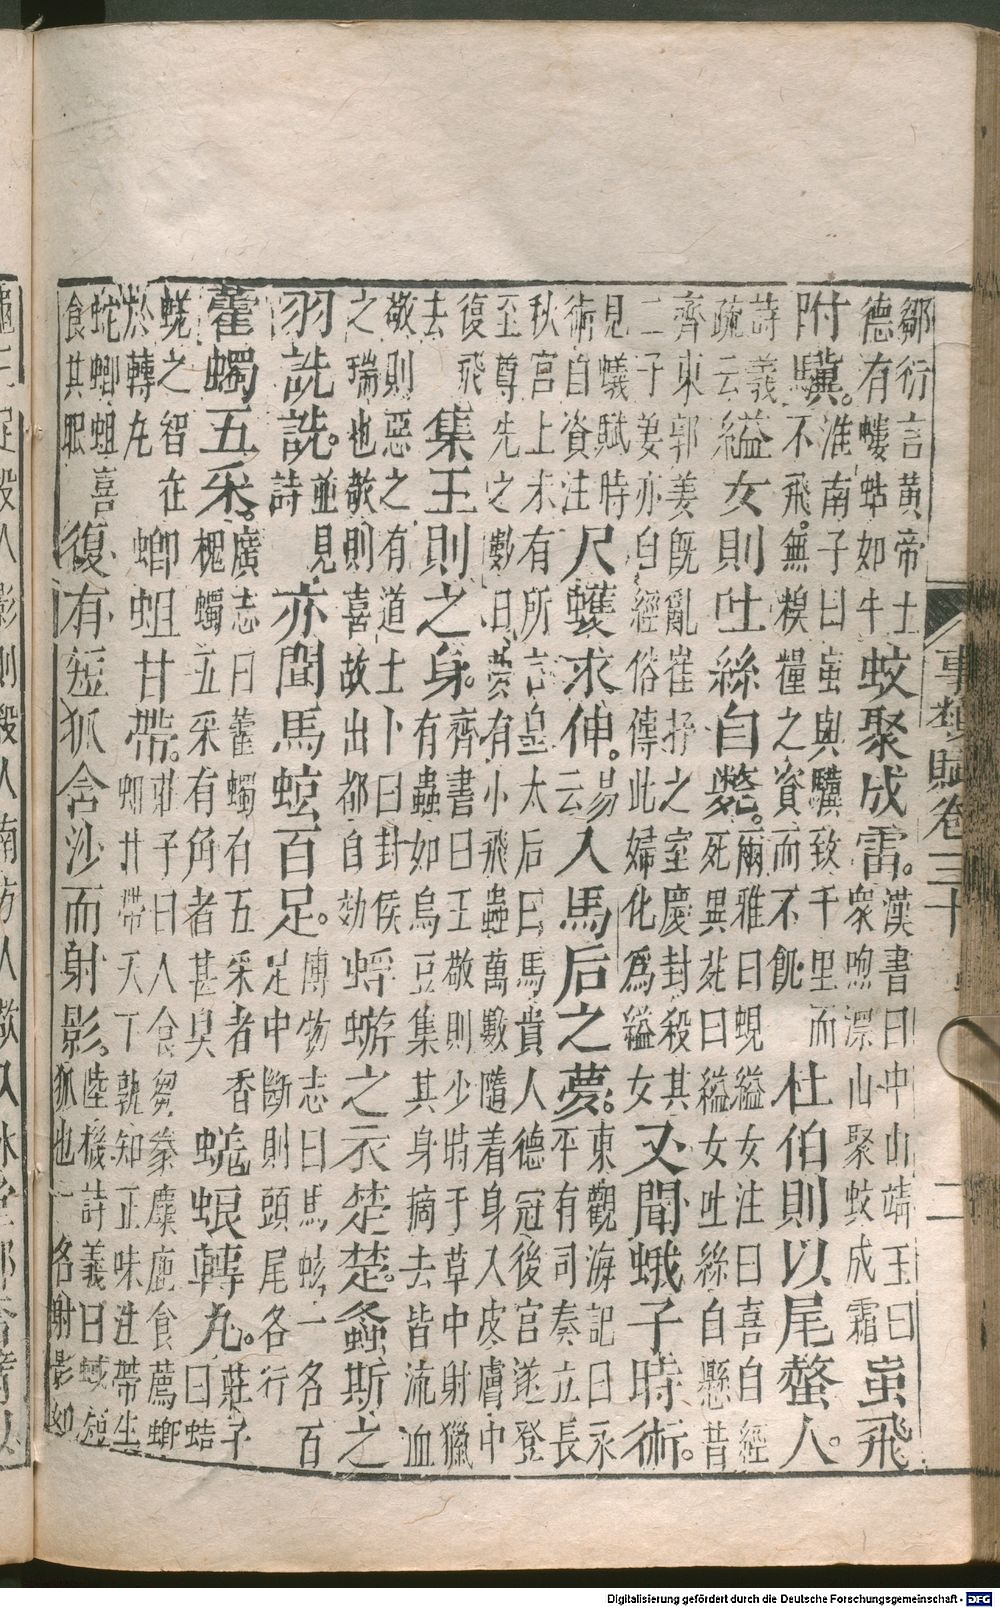 鄒衍言黃帝土
德有螻蛄如牛
蚊聚成雷。
漢書曰中山靖王曰
衆喣漂山聚蚊成霜
䖟飛
附驥。
淮南子曰䖟與驥致千里而
不飛。無糗糧之資而不飢
杜伯則以尾螫人。
詩義
疏云
縊女則吐絲自斃。
爾雅曰蜆縊女注曰喜自經
死異苑曰縊女吐絲自懸昔
齊東郭姜既亂崔抒之室慶封殺其
二子姜亦自經俗傳此婦化爲縊女
又聞蛾子時術。
見蟻賦時
術自資注
尺蠖求伸。
易
云
入馬后之夢。
東觀海記曰永
平有司奏立長
秋宮上未有所言皇太后曰馬貴人德冠後宮遂登
至尊先之數日夢有小飛蟲萬數隨着身入皮膚中
復飛
去
集王則之身。
齊書曰王敬則少時于草中射獵
有蟲如烏豆集其身摘去皆流血
敬則惡之有道士卜曰封侯
之瑞也敬則喜故出都自効
蜉蝣之衣楚楚。螽斯之
羽詵詵。
並見
詩
亦聞馬蚿百足。
博物志曰馬蚿一名百
足中斷則頭尾各行
藿蠋五采。
廣志曰藿蠋有五采者香
槐蠋五采有角者甚臭
蜣蜋轉丸。
莊子
曰蛣
蜣之智在
於轉丸
蝍蛆甘帶。
莊子曰人食芻豢麋鹿食薦蝍
蛆甘帶天下孰知正味注帶生
蛇蝍蛆喜
食其眼
復有短狐含沙而射影。
陸機詩義曰蜮短
狐也一名射影如
事類賦卷三十
二
Digitalisierung gefördert durch die Deutsche Forschungsgemeinschaft - DFG